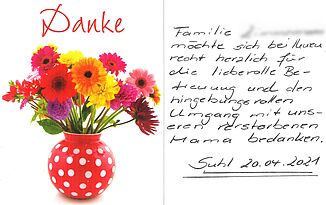 Danke
Familie
möchte sich bei Ihnen
recht herzlich für
die liebevolle Be-
treuung und den
hingebungsvollen
Umgang mit uns-
eren verstorbenen
Mama bedanken.
Suhl 20.04.2021